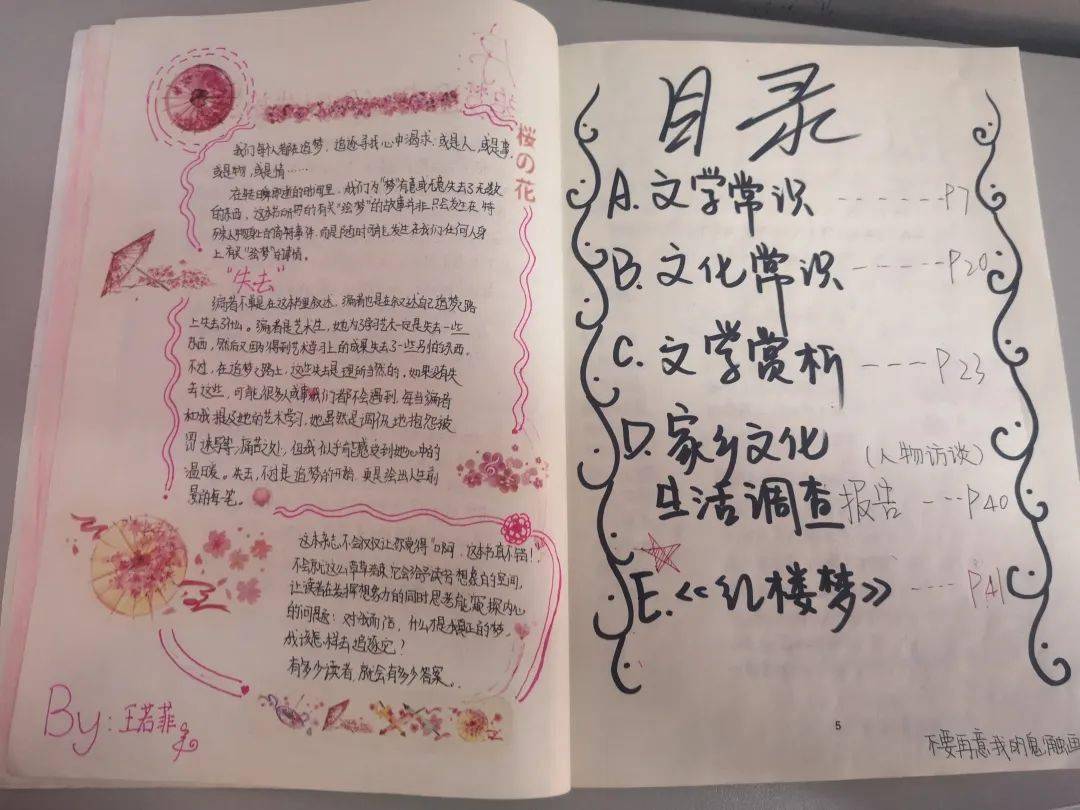 桜の花
我们每个人都在追梦，追逐寻找心中渴求，或是人，或是事，
或是物，或是情……
在转瞬即逝的时间里，我们为"梦"有意或无意失去了无数
的东西，这本书所写的有关"绘梦"的故事并非只会发生在特
殊人物身上的奇特事件，而是随时随地发生在我们任何人身
上有关"绘梦"的事情。
"失去"
编者不单是在这本书里叙述，编者也是在叙述自己追梦路
上失去了什么。编者是艺术生，她为了学习艺术一定是失去一些
东西，然后又因为得到艺术学习上的成果失去了一些另外的东西。
不过，在追梦之路上，这些失去是理所当然的，如果没有失
去这些，可能很多人或事我们都不会遇到，每当编者
和我提及她的艺术学习，她虽然是调侃地抱怨被
骂速写，痛苦之处，但我似乎能感受到她心中的
温暖。失去，不过是追梦的开始，更是绘出人生前
景的每一笔。
这本杂志不会仅仅让你觉得"口啊，这本书真不错！"
不会就这么草草结束，它会给予读者想象力的空间，
让读者在发挥想象力的同时思考能窥探内心
的问题：对我而言，什么才是我真正的梦，
我该怎样去追逐它？
有多少读者，就会有多少答案。
By：王若菲
目录
A.文学常识 ------ P7
B.文化常识 ----- P20
C.文学赏析 ---- P23
D.家乡文化 (人物访谈)
生活调查报告 --- P40
E.《红楼梦》 ---- P41
5
不要再意我的鬼触画